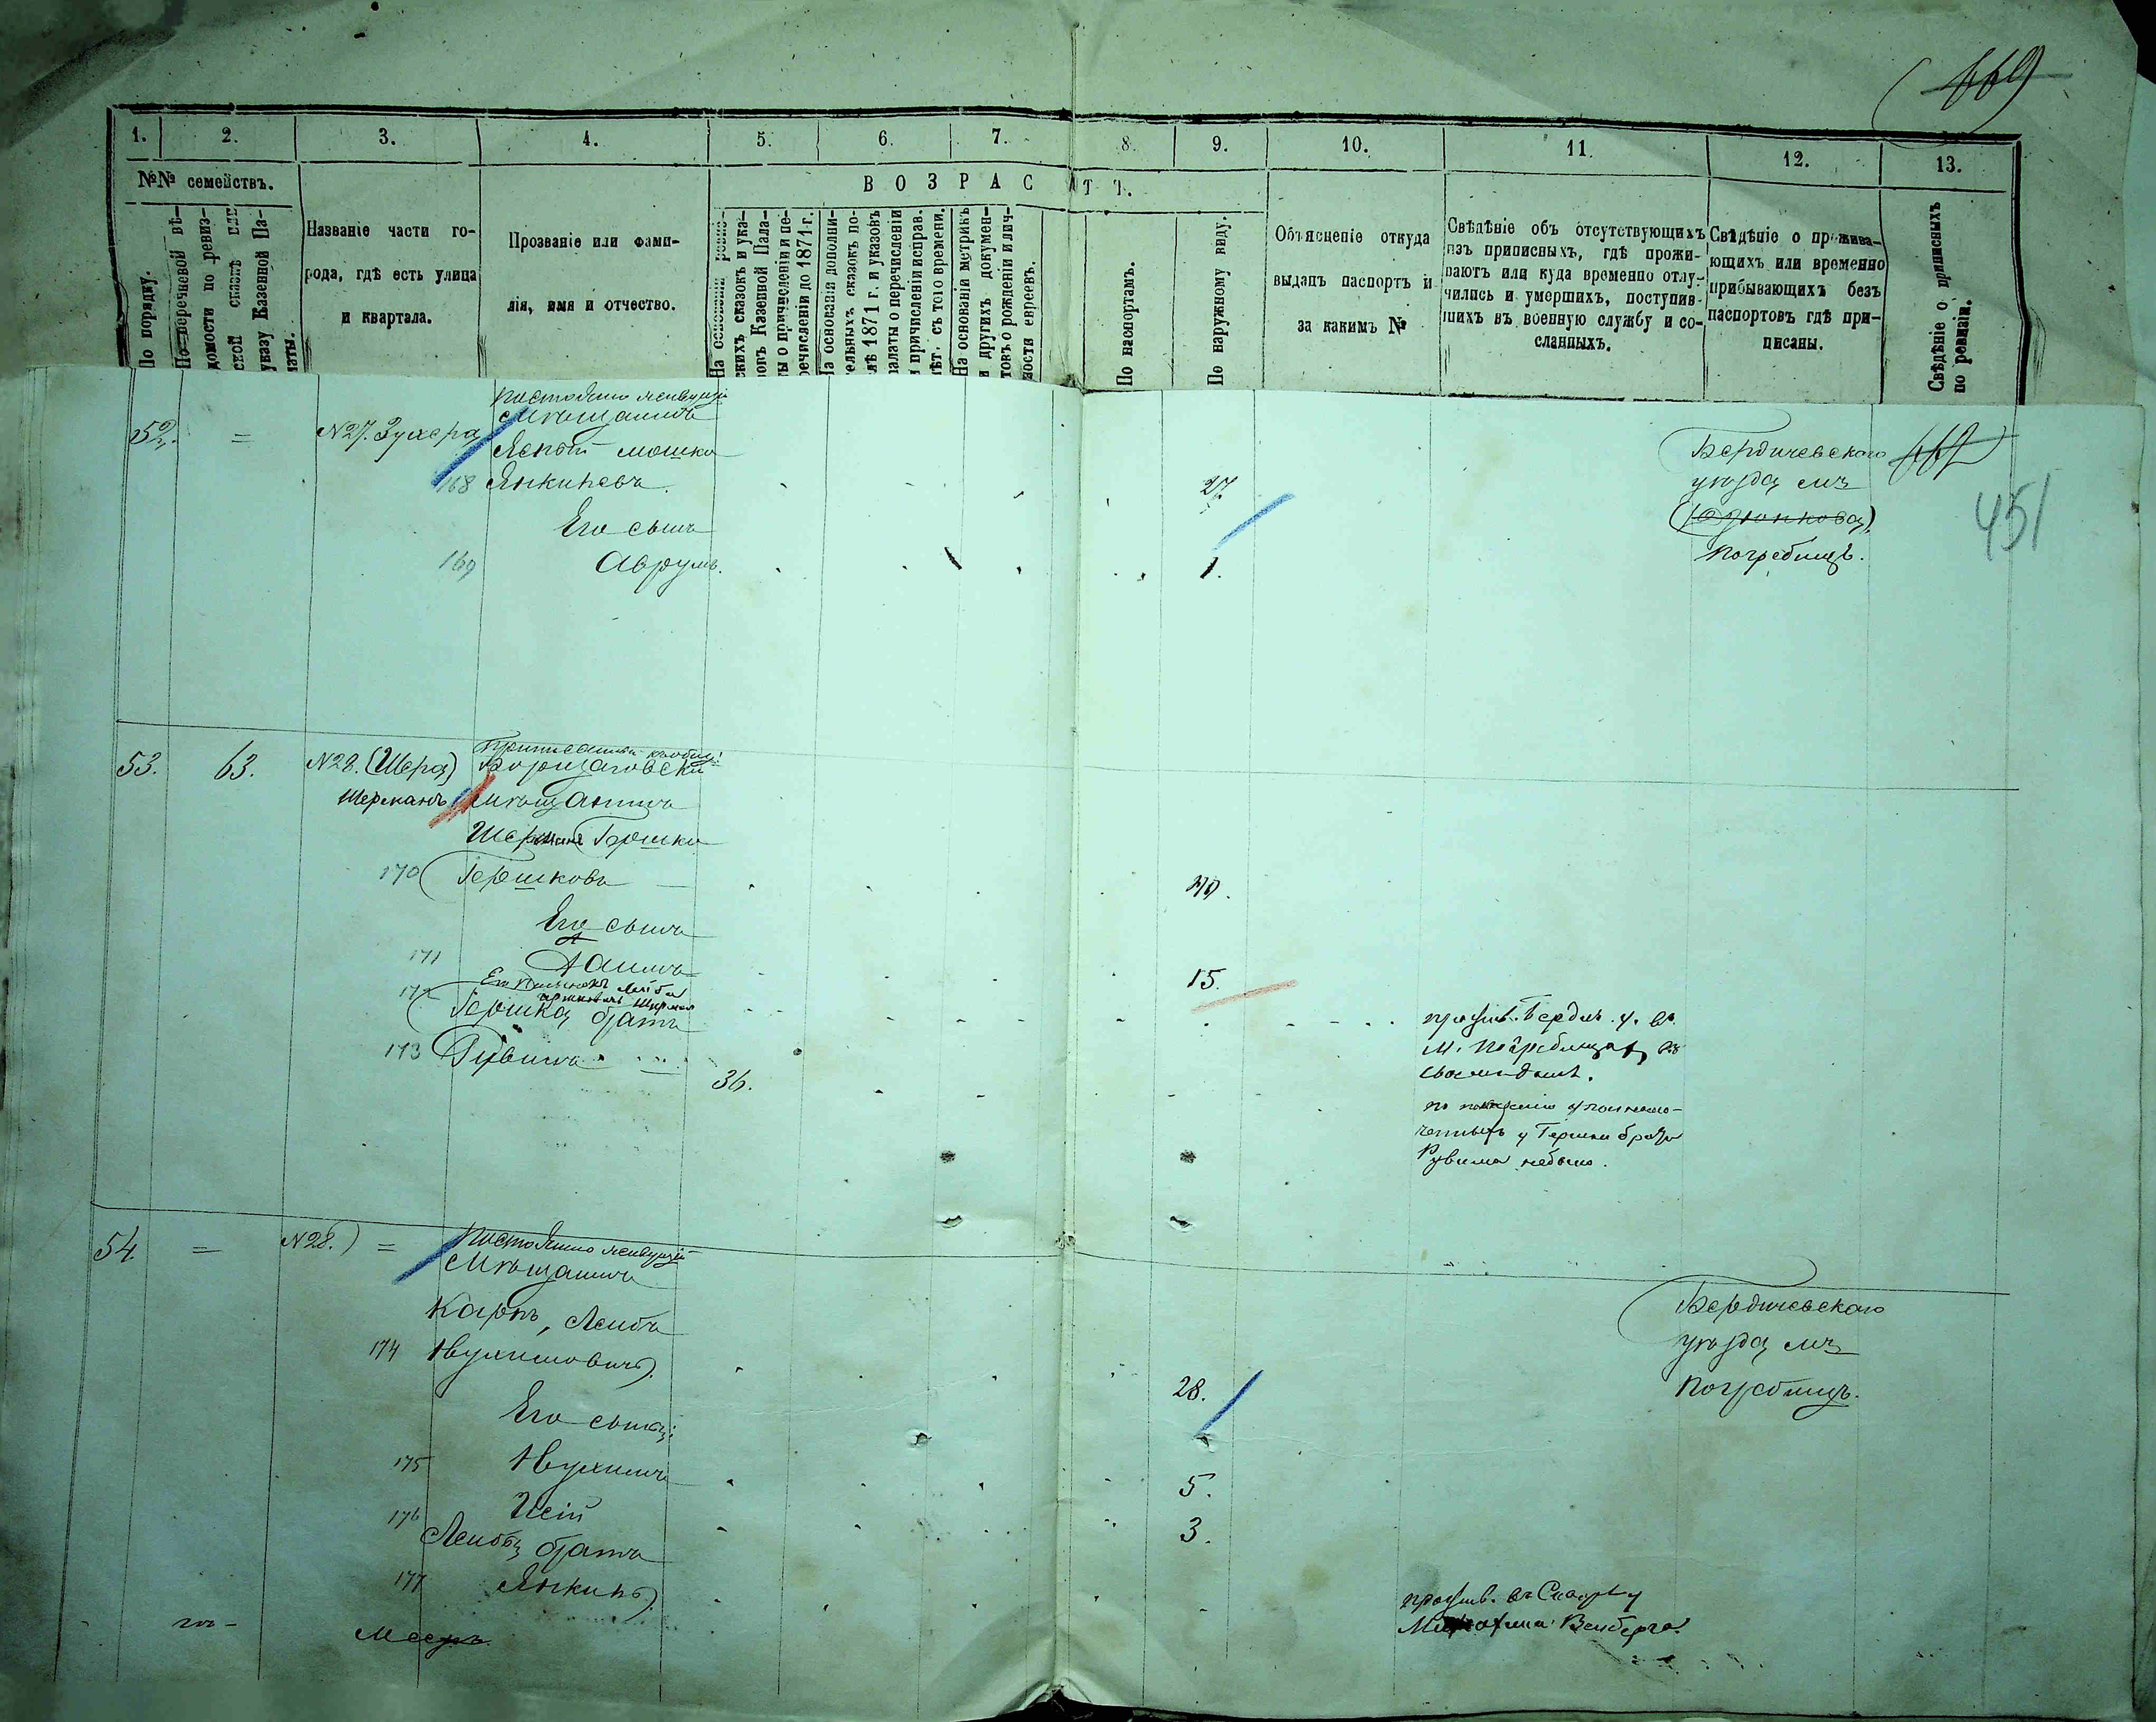 669
1. 2. 3. 4. 5. 6. 7. 8. 9. 10. 11. 12. 13.
№№ семействъ.
ВОЗРАСТЪ.
По порядку.
По перечневой вѣ-
домости по ревиз-
ской сказкѣ или
указу Казенной Па-
латы.
Названіе части го-
рода, гдѣ есть улица
и квартала.
Прозваніе или фами-
лія, имя и отчество.
На основаніи ревиз-
скихъ сказокъ и ука-
зовъ Казенной Пала-
ты о причисленіи и пе-
речисленіи до 1871 г.
На основаніи дополни-
тельныхъ сказокъ по-
слѣ 1871 г. и указовъ
палаты о перечисленіи
и причисленіи исправ.
лѣт. съ того времени.
На основаніи метрикъ
и другихъ докумен-
товъ о рожденіи и лич-
ности евреевъ.
По паспортамъ.
По наружному виду.
Объясненіе откуда
выданъ паспортъ и
за какимъ №
Свѣдѣніе объ отсутствующихъ
изъ приписныхъ, гдѣ прожи-
ваютъ или куда временно отлу-
чились и умершихъ, поступив-
шихъ въ военную службу и со-
сланныхъ.
Свѣдѣніе о прожива-
ющихъ или временно
прибывающихъ безъ
паспортовъ гдѣ при-
писаны.
Свѣдѣніе о приписныхъ
по ревизіи.
52. = №27. Зухера
Постоянно живущій
мѣщанинъ
мошко
168 Янкилевъ. 27
Его сынъ
169 Аврумъ. 1.
Бердичевскаго
уѣзда мч
Погребищъ.
451
53. 63. №28. (Шера)
Шерманъ
Борщаговскій
мѣщанинъ
Шерманъ Гершко
170 Гершковъ 40.
Его сынъ
171 15.
172 Его Лейба
Гершка братъ
173 Рувинъ 36.
прожив. Бердич. у. въ
м. Погребищахъ въ
своемъ домѣ.
по показанію уполномо-
ченныхъ у Гершки брата
Рувима небыло.
54. = №28.) =
Постоянно живущій
Мѣщанинъ
Карпъ, Лейба
174 Нухимовичъ). 28.
Его сыны:
175 Нухимъ 5.
176 3.
Лейбы братъ
177 Янкиль).
Мееръ.
Бердичевскаго
уѣзда мч
Погребищъ.
прожив. въ у
Венберга.